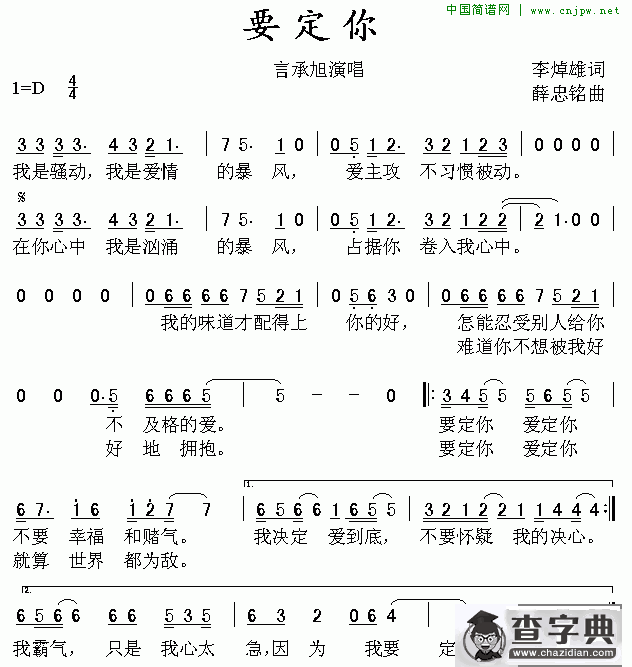 中国简谱网 | www.cnjpw.net
要定你
言承旭演唱 李焯雄词
1=D 4/4 薛忠铭曲
3 3 3 3· 4 3 2 1· | 7 5· 1 0 | 0 5 1 2· 4 3 2 1 2 3 | 0 0 0 0 |
我是骚动，我是爱情 的暴 风， 爱主攻 不习惯被动。
3 3 3 3· 4 3 2 1· | 7 5· 1 0 | 0 5 1 2· 3 2 1 2 2 | 2 1· 0 0 |
在你心中 我是汹涌 的暴 风， 占据你 卷入我心中。
0 0 0 0 | 0 6 6 6 6 7 5 2 1 | 0 5 6 3 0 | 0 6 6 6 6 7 5 2 1 |
我的味道才配得上 你的好， 怎能忍受别人给你
难道你不想被我好
0 0 0· 5 6 6 6 5 | 5 - - 0 |: 3 4 5 5 5 6 5 5 |
不 及格的爱。 要定你 爱定你
好 地 拥抱。 要定你 爱定你
6 7· 1 6 1 2 7 7 | 1. 6 5 6 6 1 6 5 5 | 3 2 1 2 2 1 4 4 4 :|
不要 幸福 和赌气。 我决定 爱到底， 不要怀疑 我的决心。
就算 世界 都为敌。
2. 6 5 6 6 5 3 5 | 6· 3 0 6 4
我霸气， 只是 我心太 急，因 为 我要 定
查字典
www.chazidian.com